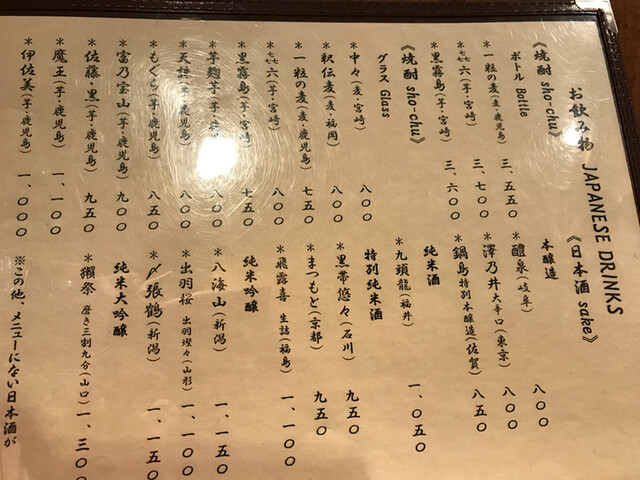 お飲み物 JAPANESE DRINKS
《焼酎 sho-chu》
ボトル Bottle
＊一粒の麦（麦・鹿児島） 三、五五〇
＊㐂六（芋・宮崎） 三、七〇〇
＊黒霧島（芋・宮崎） 三、六〇〇
《焼酎 sho-chu》
グラス Glass
＊中々（麦・宮崎） 八〇〇
＊釈伝麦（麦・福岡） 八〇〇
＊一粒の麦（麦・鹿児島） 七五〇
＊㐂六（芋・宮崎） 八〇〇
＊黒霧島（芋・宮崎） 七五〇
＊芋麹芋（芋・鹿児島） 八〇〇
＊天誅（芋・鹿児島） 八〇〇
＊もぐら（芋・鹿児島） 八五〇
＊富乃宝山（芋・鹿児島） 九〇〇
＊佐藤・黒（芋・鹿児島） 九五〇
＊魔王（芋・鹿児島） 一、一〇〇
＊伊佐美（芋・鹿児島） 一、〇〇〇
《日本酒 sake》
本醸造
＊醴泉（岐阜） 八〇〇
＊澤乃井 大辛口（東京） 八〇〇
＊鍋島 特別本醸造（佐賀） 八五〇
純米酒
＊九頭龍（福井） 一、〇五〇
特別純米酒
＊黒帯悠々（石川） 九五〇
＊まつもと（京都） 九五〇
＊飛露喜 生詰（福島） 一、一〇〇
純米吟醸
＊八海山（新潟） 一、一五〇
＊出羽桜 出羽燦々（山形） 一、一〇〇
＊〆張鶴（新潟） 一、一五〇
純米大吟醸
＊獺祭 磨き三割九分（山口） 一、三〇〇
※この他、メニューにない日本酒が